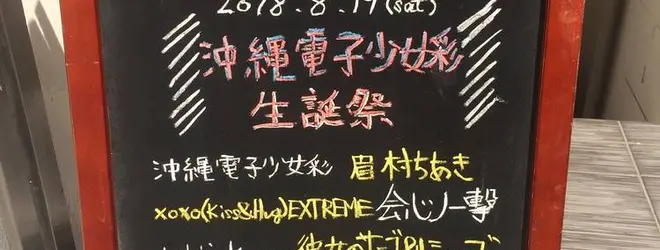 2018.8.19(sat)
沖縄電子少女彩
生誕祭
沖縄電子少女彩 眉村ちあき
xoxo(Kiss&Hug)EXTREME 会心ノ一撃